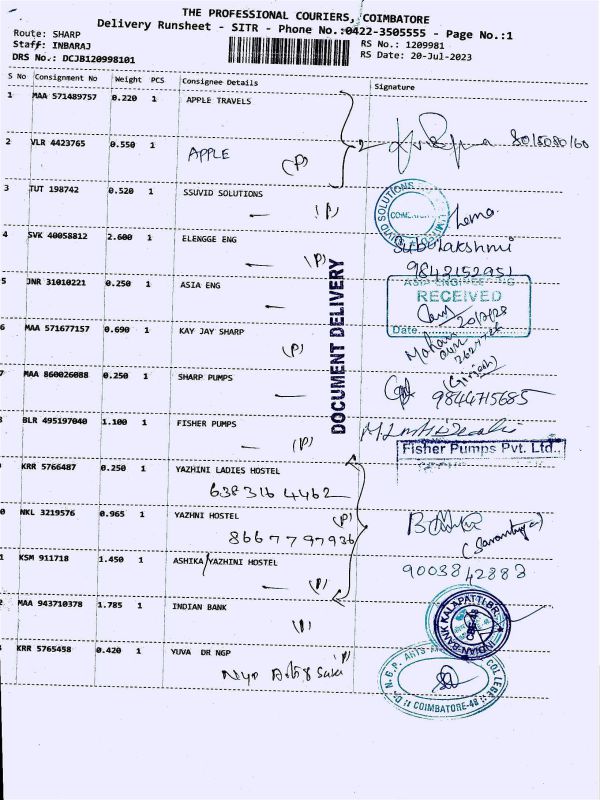 THE PROFESSIONAL COURIERS, COIMBATORE
Delivery Runsheet - SITR - Phone No.:0422-3505555 - Page No.:1
Route: SHARP
Staff: INBARAJ
DRS No.: DCJB120998101
RS No.: 1209981
RS Date: 20-Jul-2023
S No Consignment No Weight PCS Consignee Details Signature
1 MAA 571489757 0.220 1 APPLE TRAVELS
8015080160
2 VLR 4423765 0.550 1
APPLE (P)
3 TUT 198742 0.520 1 SSUVID SOLUTIONS
(P)
Hema
4 SVK 40058812 2.600 1 ELENGGE ENG
Subbulakshmi
(P)
9843152951
5 JNR 31010221 0.250 1 ASIA ENG
ASIA ENGINEERING
RECEIVED
20/7/23
Date
6 MAA 571677157 0.690 1 KAY JAY SHARP
(P)
Mohan
(Girish)
7 MAA 860026088 0.250 1 SHARP PUMPS
9844715685
DOCUMENT DELIVERY
8 BLR 495197040 1.100 1 FISHER PUMPS
(P)
Fisher Pumps Pvt. Ltd.,
9 KRR 5766487 0.250 1 YAZHINI LADIES HOSTEL
638316 4462
0 NKL 3219576 0.965 1 YAZHNI HOSTEL
(P)
8667797936
1 KSM 911718 1.450 1 ASHIKA/YAZHINI HOSTEL
(P)
9003842883
2 MAA 943710378 1.785 1 INDIAN BANK
(P)
INDIAN BANK KALAPATTI BR.
KRR 5765458 0.420 1 YUVA DR NGP
(P)
Dr. N.G.P. ARTS COLLEGE
COIMBATORE-48